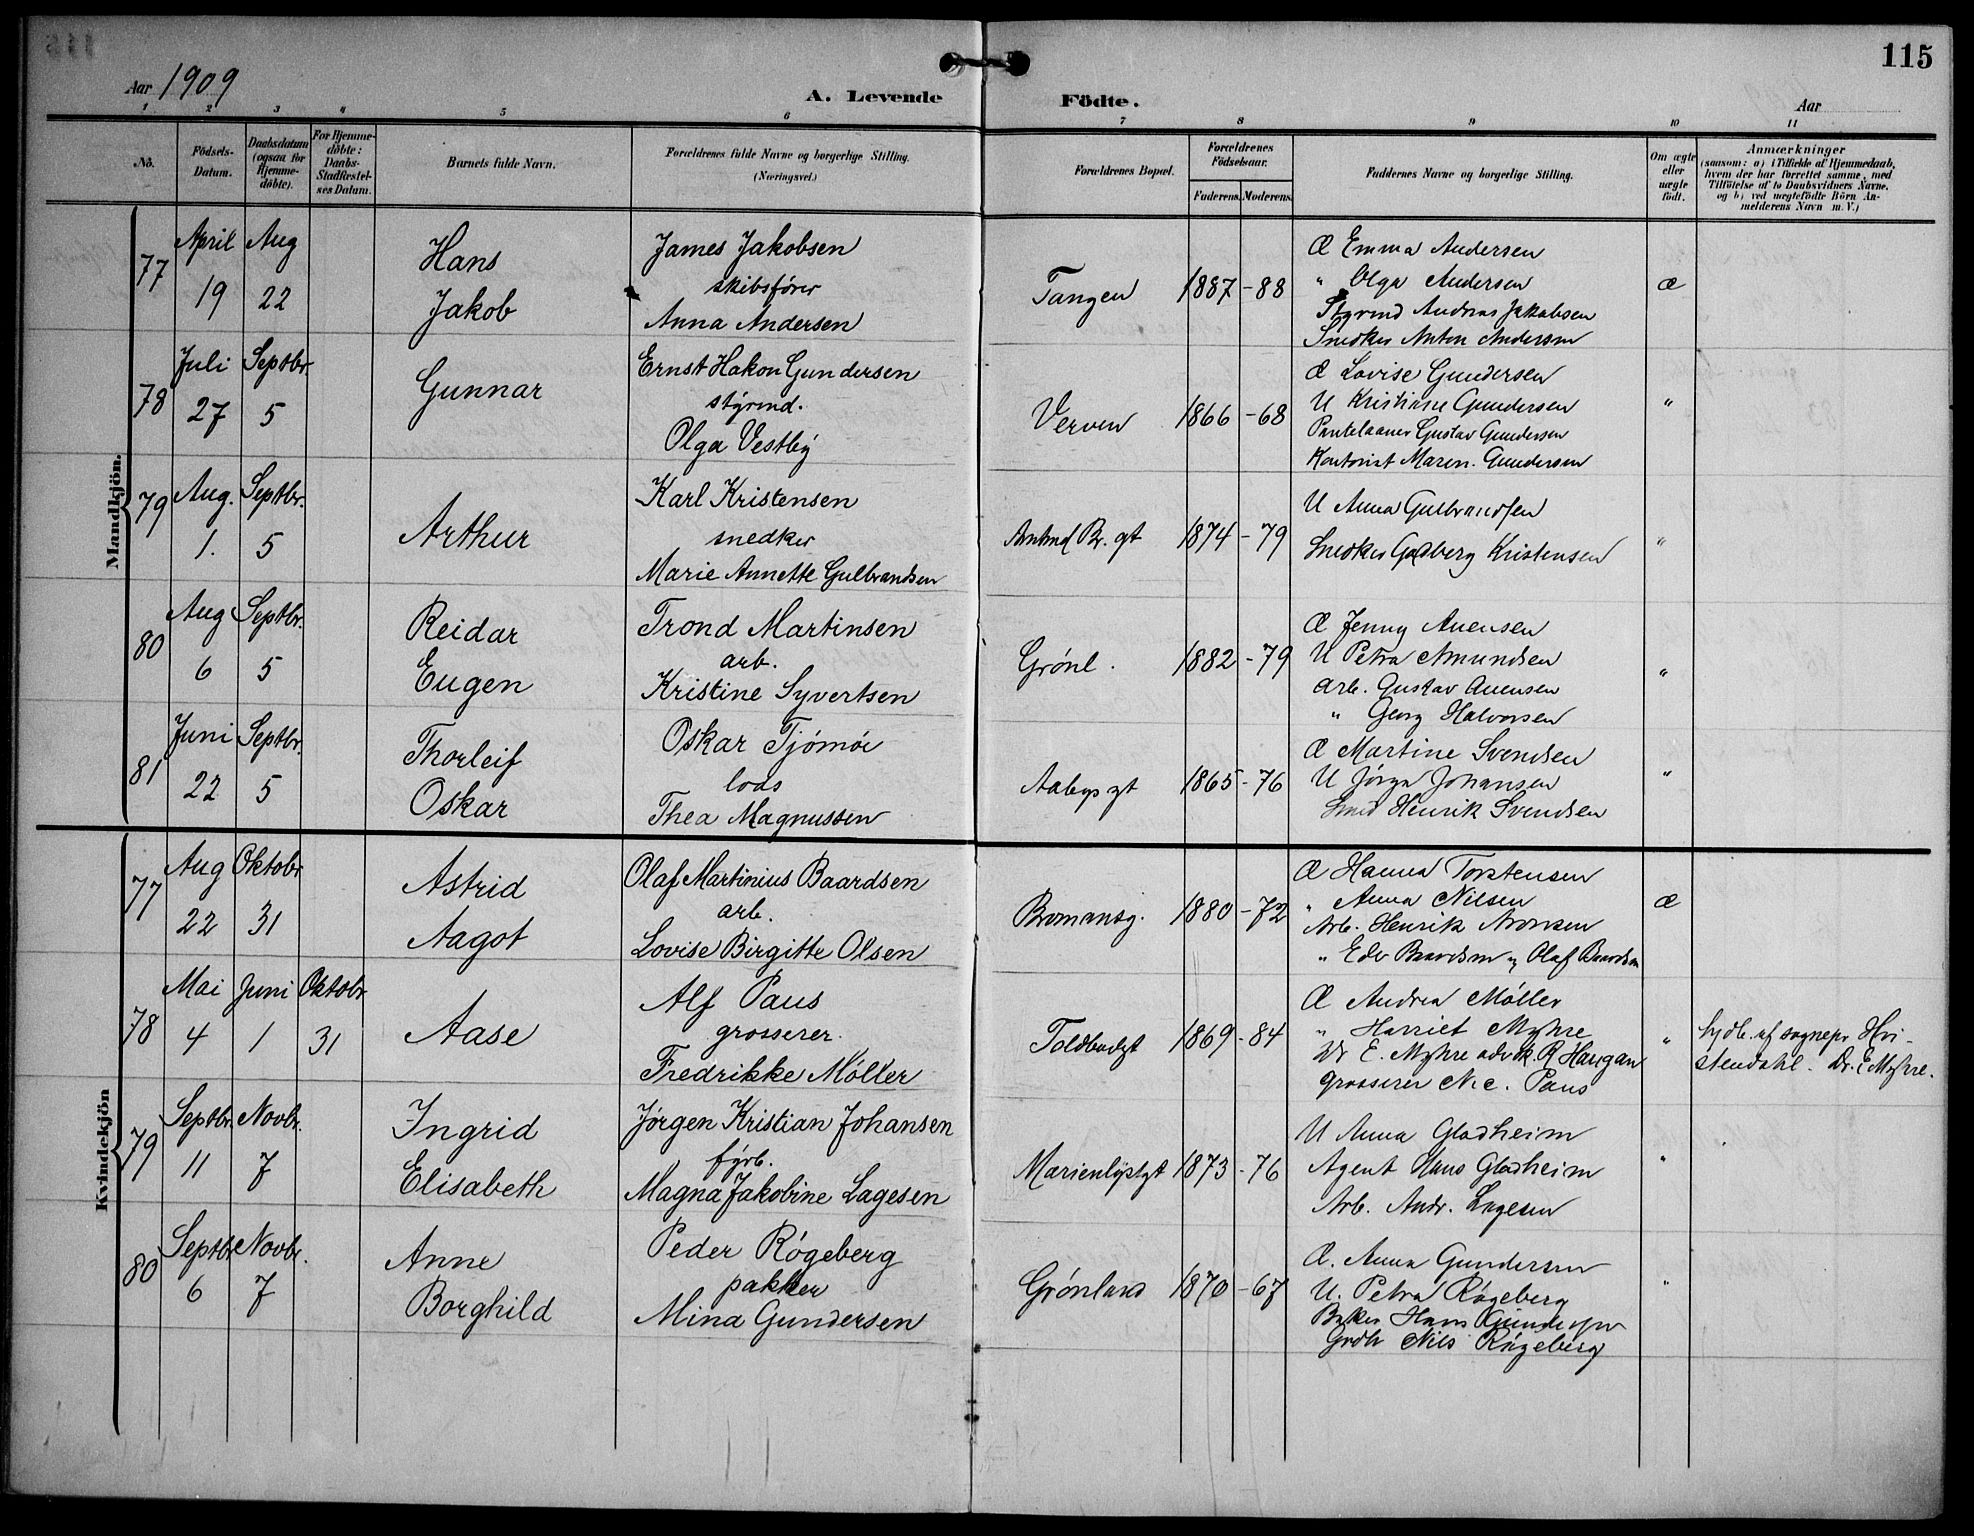 115
Aar 1909
A. Levende Födte.
Aar
1 2 3 4 5 6 7 8 9 10 11
No.
Födsels-Datum.
Daabsdatum (ogsaa for Hjemme-döbte).
For Hjemme-döbte: Daabs-Stadfæstel-ses Datum.
Barnets fulde Navn.
Forældrenes fulde Navne og borgerlige Stilling. (Næringsvei.)
Forældrenes Bopæl.
Forældrenes Födselsaar.
Faderens. Moderens.
Faddernes Navne og borgerlige Stilling.
Om ægte eller uægte født.
Anmærkninger
(saasom: a) i Tilfælde af Hjemmedaab, hvem der har forrettet samme, med Tilføielse af to Daabsvidners Navne, og b) ved uægtefødte Börn An-melderens Navn m. V.)
Mandkjön.
77 April 19 Aug 22
Hans Jakob
James Jakobsen
skibsfører
Anna Andersen
Tangen 1887 -88
Æ Emma Andersen
" Olga Andersen
Styrmd Andreas Jakobsen
Snedker Anton Andersen
æ
78 Juli 27 Septbr. 5
Gunnar
Ernst Hakon Gundersen
styrmd.
Olga Vestby
Verven 1866 -68
Æ Lovise Gundersen
U Kristiane Gundersen
Pantelaaner Gustav Gundersen
Kontorist Maren. Gundersen
"
79 Aug. 1. Septbr. 5
Arthur
Karl Kristensen
snedker
Marie Annette Gulbrandsen
Amtmd Br. gt 1874 -79
U Anna Gulbrandsen
Snedker Godberg Kristensen
"
80 Aug 6 Septbr. 5
Reidar Eugen
Trond Martinsen
arb.
Kristine Syvertsen
Grønl. 1882 -79
Æ Jenny Auensen
U Petra Amundsen
Arb. Gustav Auensen
" Georg Halvorsen
"
81 Juni 22 Septbr. 5
Thorleif Oskar
Oskar Tjømøe
lods
Thea Magnussen
Aabys gt 1865 -76
Æ Martine Svendsen
U Jørga Johansen
Smed Henrik Svendsen
"
Kvindekjön
77 Aug 22 Oktobr 31
Astrid Aagot
Olaf Martinius Baardsen
arb.
Lovise Birgitte Olsen
Bromansg. 1880 -72
Æ Hanna Torstensen
" Anna Nilsen
Arb. Henrik Aronsen
" Edv Baardsen og Olaf Baardsen
æ
78 Mai 4 Juni 1 Oktobr 31
Aase
Alf Paus
grosserer.
Fredrikke Møller
Toldbodgt 1869 -84
Æ Andrea Møller
" Harriet Myhre
Dr E. Myhre advk. R Haugan
Grosserer Nic. Paus
"
hjdb. af sognepr Hvi-
stendahl. Dr. E Myhre.
79 Septbr. 11 Novbr. 7
Ingrid Elisabeth
Jørgen Kristian Johansen
fyrb.
Magna Jakobine Lagesen
Marienlystgt 1873 -76
U Anna Gladheim
Agent Hans Gladheim
Arb. Andr. Lagesen
"
80 Septbr 6 Novbr. 7
Anne Borghild
Peder Røgeberg
pakker
Mina Gundersen
Grønland 1870 -67
Æ. Anna Gundersen
U. Petra Røgeberg
Baker Hans Gundersen
Grdbr Nils Røgeberg
"